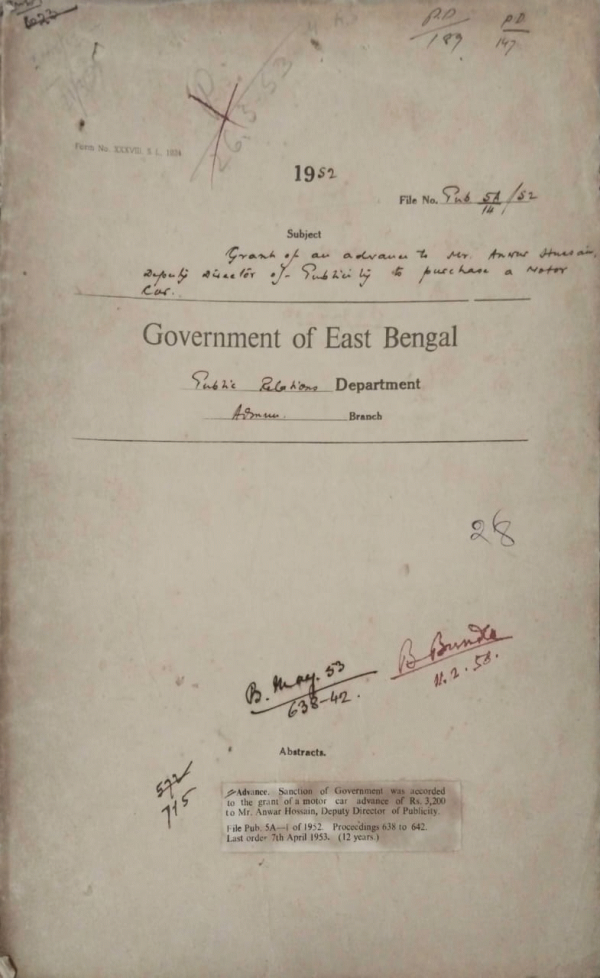 623
P.D
189
P.D
147
26.3.53
Form No. XXXVIII. S 1., 1924
1952
File No. Pub 5A/14/52
Subject
Grant of an advance to Mr. Anwar Hussain,
Deputy Director of Publicity to purchase a Motor
Car.
Government of East Bengal
Public Relations Department
Admn. Branch
28
B. May. 53
638-42.
B Bundle
11.2.53.
Abstracts.
592
715
Advance. Sanction of Government was accorded
to the grant of a motor car advance of Rs. 3,200
to Mr. Anwar Hossain, Deputy Director of Publicity.
File Pub. 5A—1 of 1952. Proceedings 638 to 642.
Last order 7th April 1953. (12 years.)